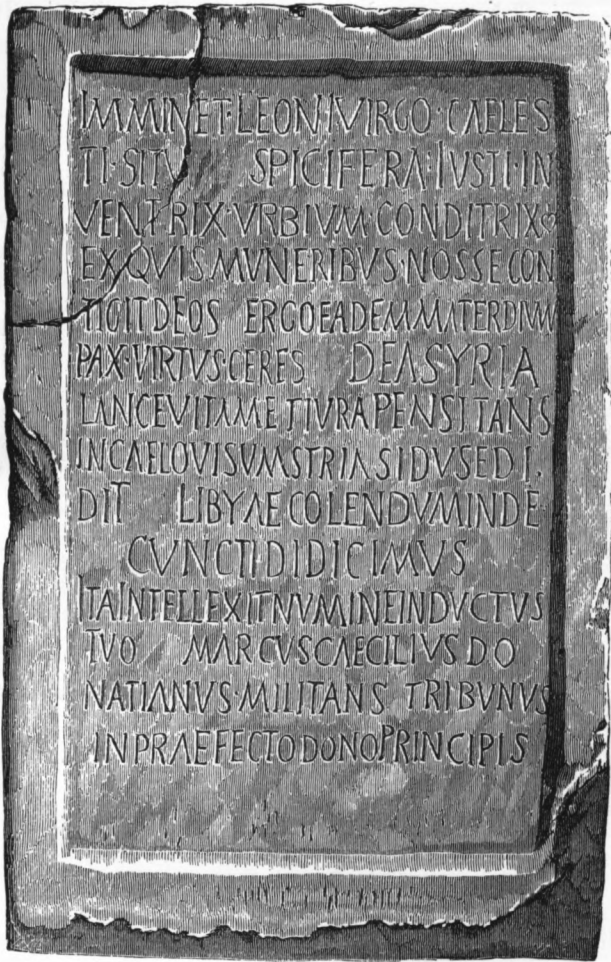 IMMINET·LEONI·VIRGO·CAELES
TI·SITV SPICIFERA·IVSTI·IN
VENTRIX·VRBIVM·CONDITRIX
EX·QVIS·MVNERIBVS·NOSSE CON
TIGIT DEOS ERGO EADEM MATER DIVVM
PAX·VIRTVS·CERES DEA·SYRIA
LANCE VITAM ET IVRA PENSITANS
IN CAELO VISVM SYRIA SIDVS EDI
DIT LIBYAE COLENDVM INDE
CVNCTI DIDICIMVS
ITA INTELLEXIT NVMINE INDVCTVS
TVO MARCVS CAECILIVS DO
NATIANVS·MILITANS TRIBVNVS
IN PRAEFECTO DONO PRINCIPIS